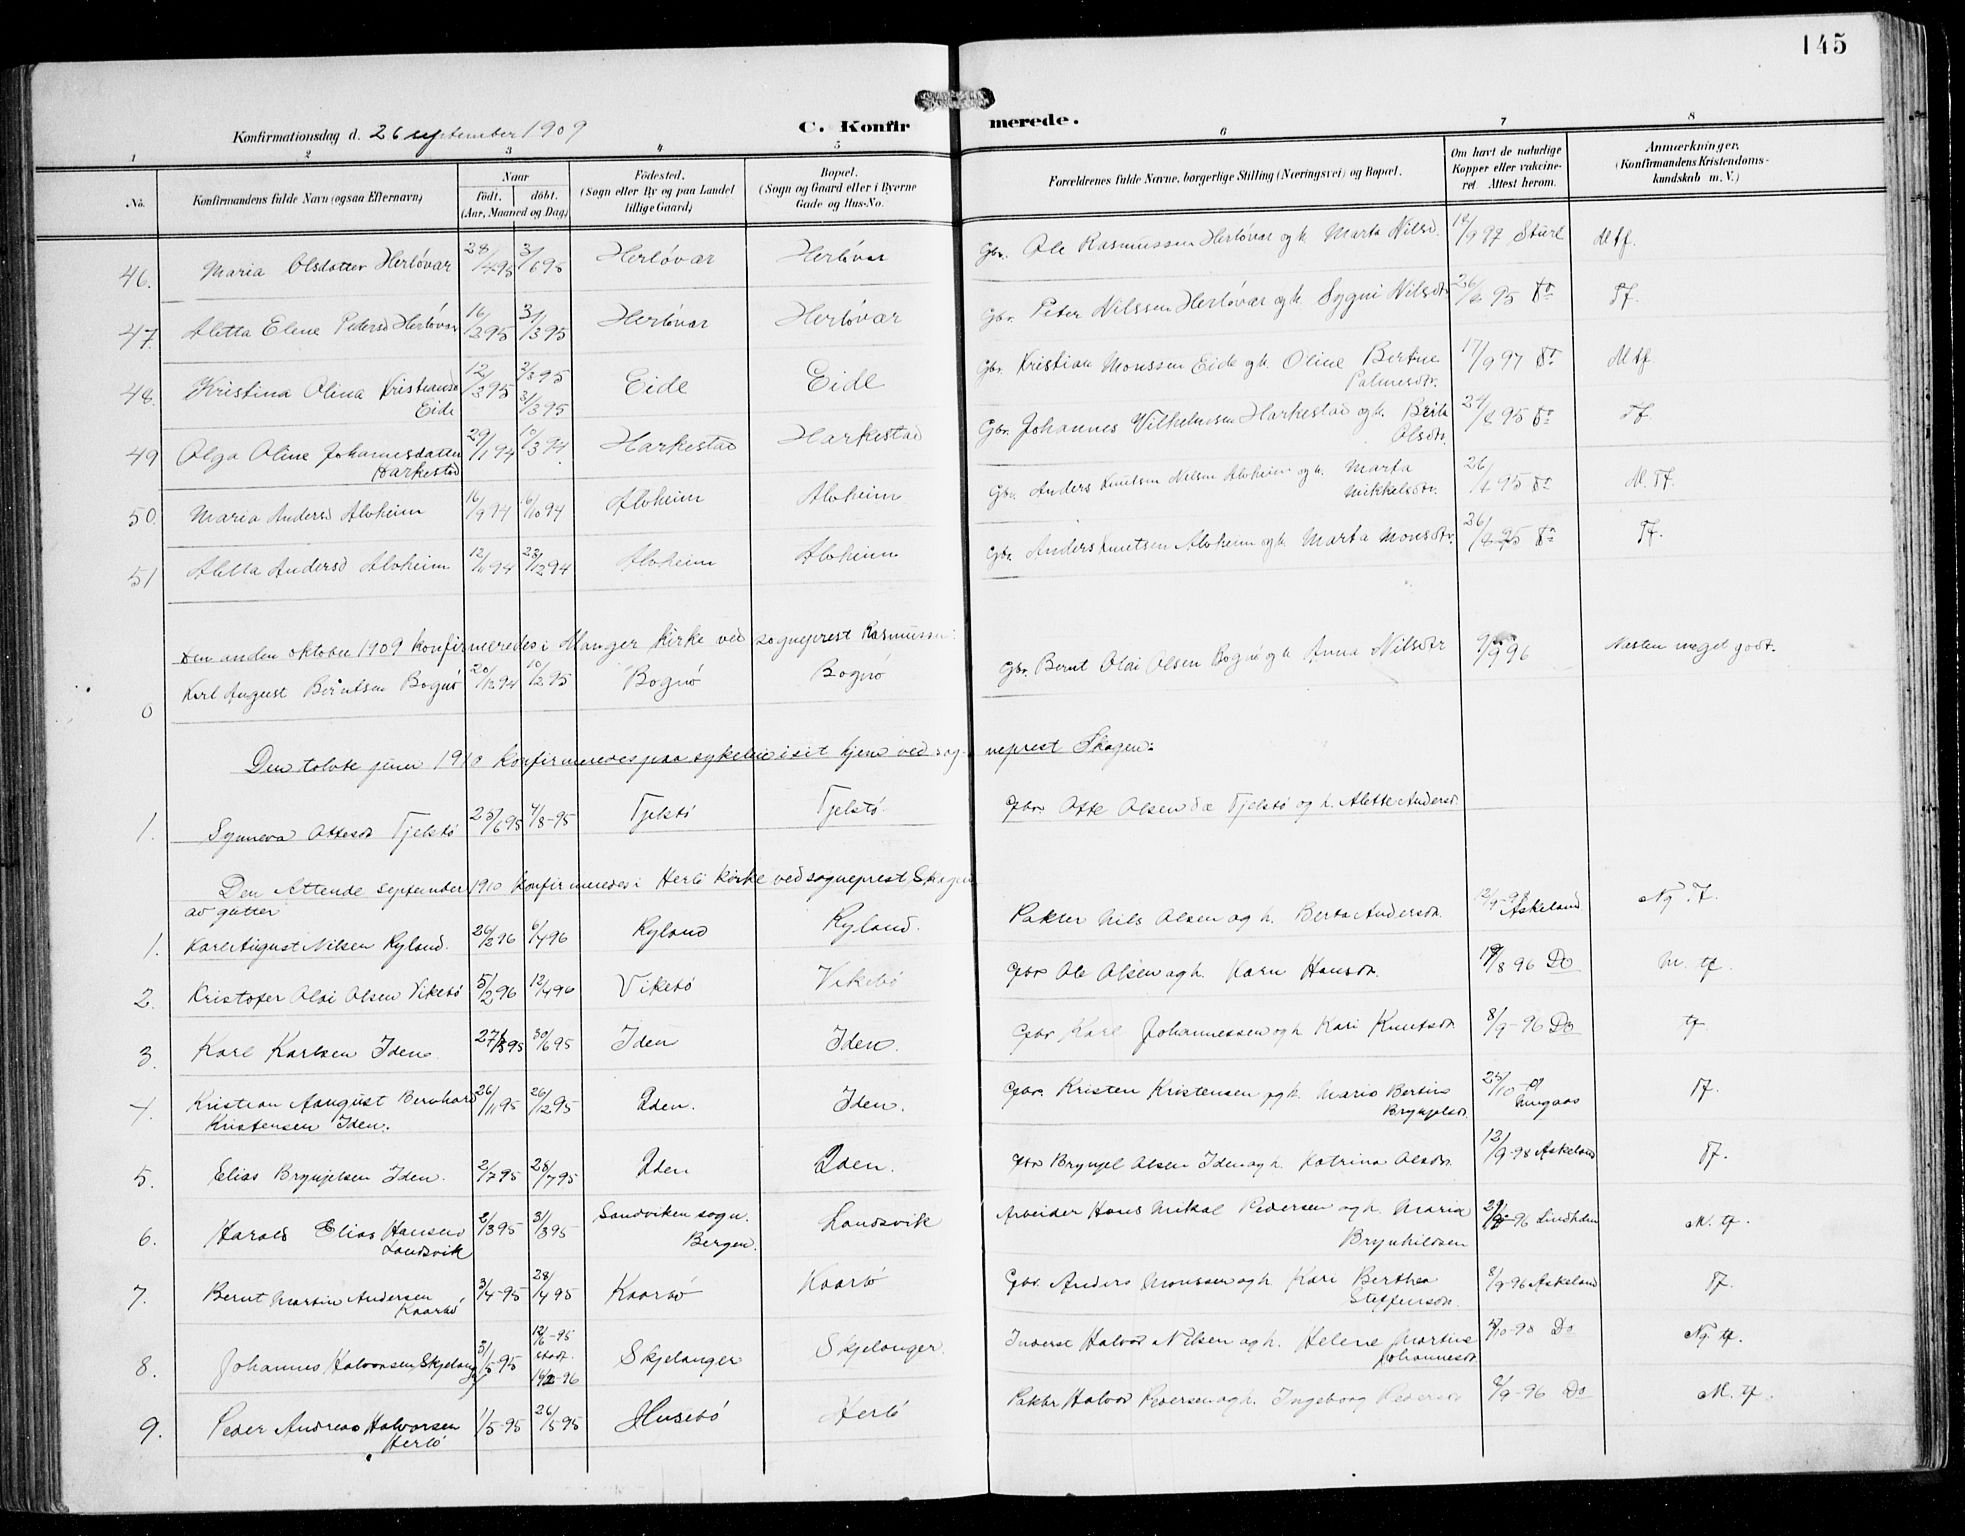 145
Konfirmationsdag d. 26 september 1909
C. Konfirmerede.
1 2 3 4 5 6 7 8
No. Konfirmandens fulde Navn (ogsaa Efternavn) Naar født. døbt. (Aar, Maaned og Dag) Fødested. (Sogn eller By og paa Landet tillige Gaard) Bopæl. (Sogn og Gaard eller i Byerne Gade og Hus-No. Forældrenes fulde Navne, borgerlige Stilling (Næringsvei) og Bopæl. Om havt de naturlige Kopper eller vaccineret. Attest herom. Anmærkninger, (Konfirmandens Kristendomskundskab m. V.)
46. Maria Olsdotter Herløvær 28/4 95 3/6 95 Herløvær Herløvær Gbr. Ole Rasmussen Herløvær og h. Marta Nilsd. 14/9 97 Sture M tf.
47. Aletta Elene Pedersd Herløvær 16/2 95 31/3 95 Herløvær Herløvær Gbr. Peter Nilssen Herløvær og h. Sygni Nilsdtr. 26/6 95 Do Tf.
48. Kristina Olina Kristiansd 12/2 95 2/3 95 Eide Eide Gbr. Kristian Monssen Eide og h. Oline Bertine 17/9 97 Do M tf.
Eide 31/3 95 Palmesdtr.
49 Olga Oline Johannesdatter 29/1 94 10/3 94 Harkestad Harkestad Gbr. Johannes Vilhelmsen Harkestad og h. Brita 24/6 95 Do Tf.
Harkestad Olsdtr.
50. Maria Andersd Alvheim 16/9 94 6/10 94 Alvheim Alvheim Gbr. Anders Knutsen Nilsen Alvheim og h. Marta 26/6 95 Do M. Tf.
Mikkelsdtr.
51 Aletta Andersd Alvheim 12/11 94 23/12 94 Alvheim Alvheim Gbr. Anders Knutsen Alvheim og h. Marta Monsdtr. 26/6 95 Do Tf.
Den anden oktober 1909 konfirmeredes i Manger kirke ved sogneprest Rasmussen:
0 Karl August Berntsen Bognø 20/12 94 10/2 95 Bognø Bognø Gbr. Bernt Olai Olsen Bognø og h. Anna Nilsdtr 9/9 96 Næsten meget godt.
Den tolvte juni 1910 konfirmeredes paa sykeleie i sit hjem ved sogneprest Skagen:
1. Synneva Ottesdt Tjelstø 25/6 95 4/8-95 Tjelstø Tjelstø. Gbr. Otte Olsen Tjelstø og h. Alette Andersd.
Den Attende september 1910 konfirmeredes i Herlø kirke ved sogneprest Skagen
av gutter
1. Karl August Nilsen Ryland. 26/2 96 6/4 96 Ryland Ryland. Pakter Nils Olsen og h. Berta Andersdt. Askeland Ng. Tf.
2. Kristofer Olai Olsen Vikebø 5/2 96 12/4 96 Vikebø Vikebø Gbr Ole Olsen og h. Karn Hansdt. 19/8 96 Do M. tf.
3. Karl Karlsen Iden. 27/5 95 30/6 95 Iden Iden. Gbr Karl Johannessen og h. Kari Knutsdt. 8/9-96 Do tf
4. Kristian Aaugust Bernhard 26/11 95 26/12 95 Iden. Iden. Gbr. Kristen Kristensen og h. Maria Bertine 25/10 Tf.
Kristensen Iden. Brynjelsdt.
5. Elias Brynjelsen Iden. 2/7 95 28/7 95 Iden Iden. Gbr Brynjel Olsen Iden og h. Katrina Olsdt. 12/9-98 Askeland Tf.
6. Harald Elias Hansen 2/3 95 31/3 95 Sandviken sogn. Landsvik Arbeider Hans Mikal Pedersen og h. Maria 96 Lindheim M. tf.
Landsvik Bergen. Brynhildsen
7. Bernt Martin Andersen 3/4-95 28/4 95 Kaarbø Kaarbø Gbr. Anders Monssen og h. Kari Berthea 8/9-96 Askeland Tf.
Kaarbø Steffensdt.
8. Johannes Halvorsen Skjelanger 3/5-95 12/6-95 Skjelanger Skjelanger Inderst Halvor Nilsen og h. Helene Martine 5/10-98 Do Ng. tf.
stadf. 14/2-96 Johannesdt.
9. Peder Andreas Halvorsen 1/5-95 26/5 95 Husebø Herlø Pakter Halvor Pedersen og h. Ingeborg Pedersd 8/9-96 Do M. tf.
Herlø